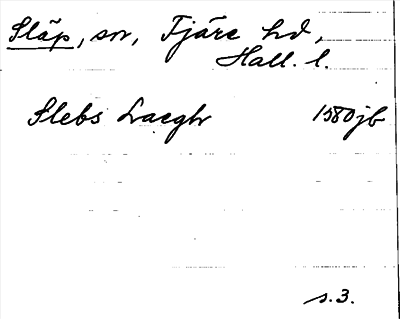 Släp, sn, Fjäre hd,
Hall. l.
Slebs Laegh 1580 jb
s. 3.